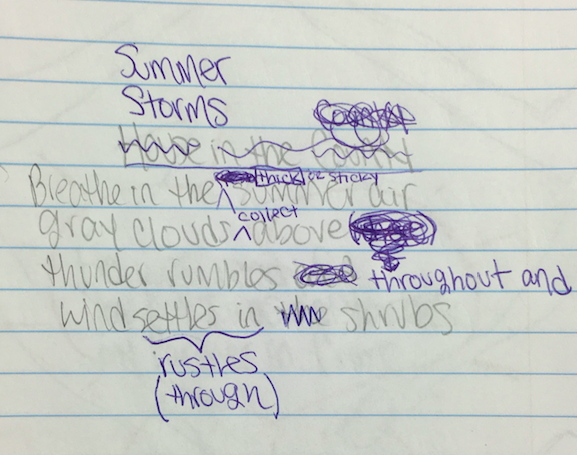 Summer
Storms
House in the
thick or sticky
Breathe in the summer air
collect
gray clouds above
thunder rumbles throughout and
wind settles in the shrubs
rustles
(through)